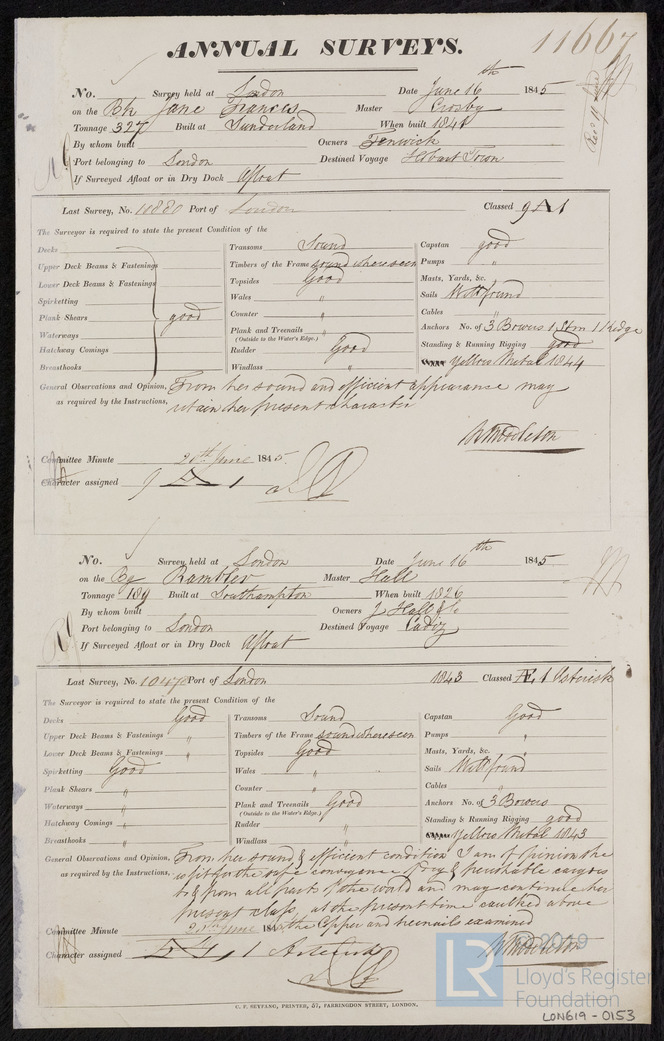 ANNUAL SURVEYS.
11667
No. Survey held at London Date June 16th 1845
on the Bk Jane Frances Master Crosby
Tonnage 327 Built at Sunderland When built 1841
By whom built Owners Fenwick
Port belonging to London Destined Voyage Hobart Town
If Surveyed Afloat or in Dry Dock Afloat
Last Survey, No. 10880 Port of London Classed 9 A 1
The Surveyor is required to state the present Condition of the
Decks Transoms Sound Capstan good
Upper Deck Beams & Fastenings Timbers of the Frame sound where seen Pumps "
Lower Deck Beams & Fastenings Topsides Good Masts, Yards, &c.
Spirketting Wales " Sails Well found
Plank Shears good Counter " Cables "
Waterways Plank and Treenails " Anchors No. of 3 Bowers 1 Strm 1 Kedge
(Outside to the Water's Edge.)
Hatchway Comings Rudder Good Standing & Running Rigging good
Breasthooks Windlass " Yellow Metal 1844
General Observations and Opinion, From her sound and efficient appearance may
as required by the Instructions, retain her present character
W Middleton
Committee Minute 20th June 1845.
Character assigned 9 A 1
No. Survey held at London Date June 16th 1845
on the Bg Rambler Master Hall
Tonnage 189 Built at Southampton When built 1826
By whom built Owners J Hall & Co
Port belonging to London Destined Voyage Cadiz
If Surveyed Afloat or in Dry Dock Afloat
Last Survey, No. 1047 Port of London 1843 Classed Æ 1 Asterisk
The Surveyor is required to state the present Condition of the
Decks Good Transoms Sound Capstan Good
Upper Deck Beams & Fastenings " Timbers of the Frame sound where seen Pumps "
Lower Deck Beams & Fastenings " Topsides Good Masts, Yards, &c.
Spirketting Good Wales " Sails Well found
Plank Shears " Counter " Cables "
Waterways " Plank and Treenails Good Anchors No. of 3 Bowers
(Outside to the Water's Edge.)
Hatchway Comings " Rudder " Standing & Running Rigging good
Breasthooks " Windlass " Yellow Metal 1843
General Observations and Opinion, From her sound & efficient condition I am of opinion she
as required by the Instructions, is fit for the safe conveyance of dry & perishable cargoes
to & from all parts of the world and may continue her
present class, at the present time caulked above
the Copper and treenails examined
Committee Minute 20th June 184
Character assigned Æ 1 Asterisk
W Middleton
C. F. SEYFANG, PRINTER, 57, FARRINGDON STREET, LONDON.
LR
© 2019
Lloyd's Register
Foundation
LON619-0153